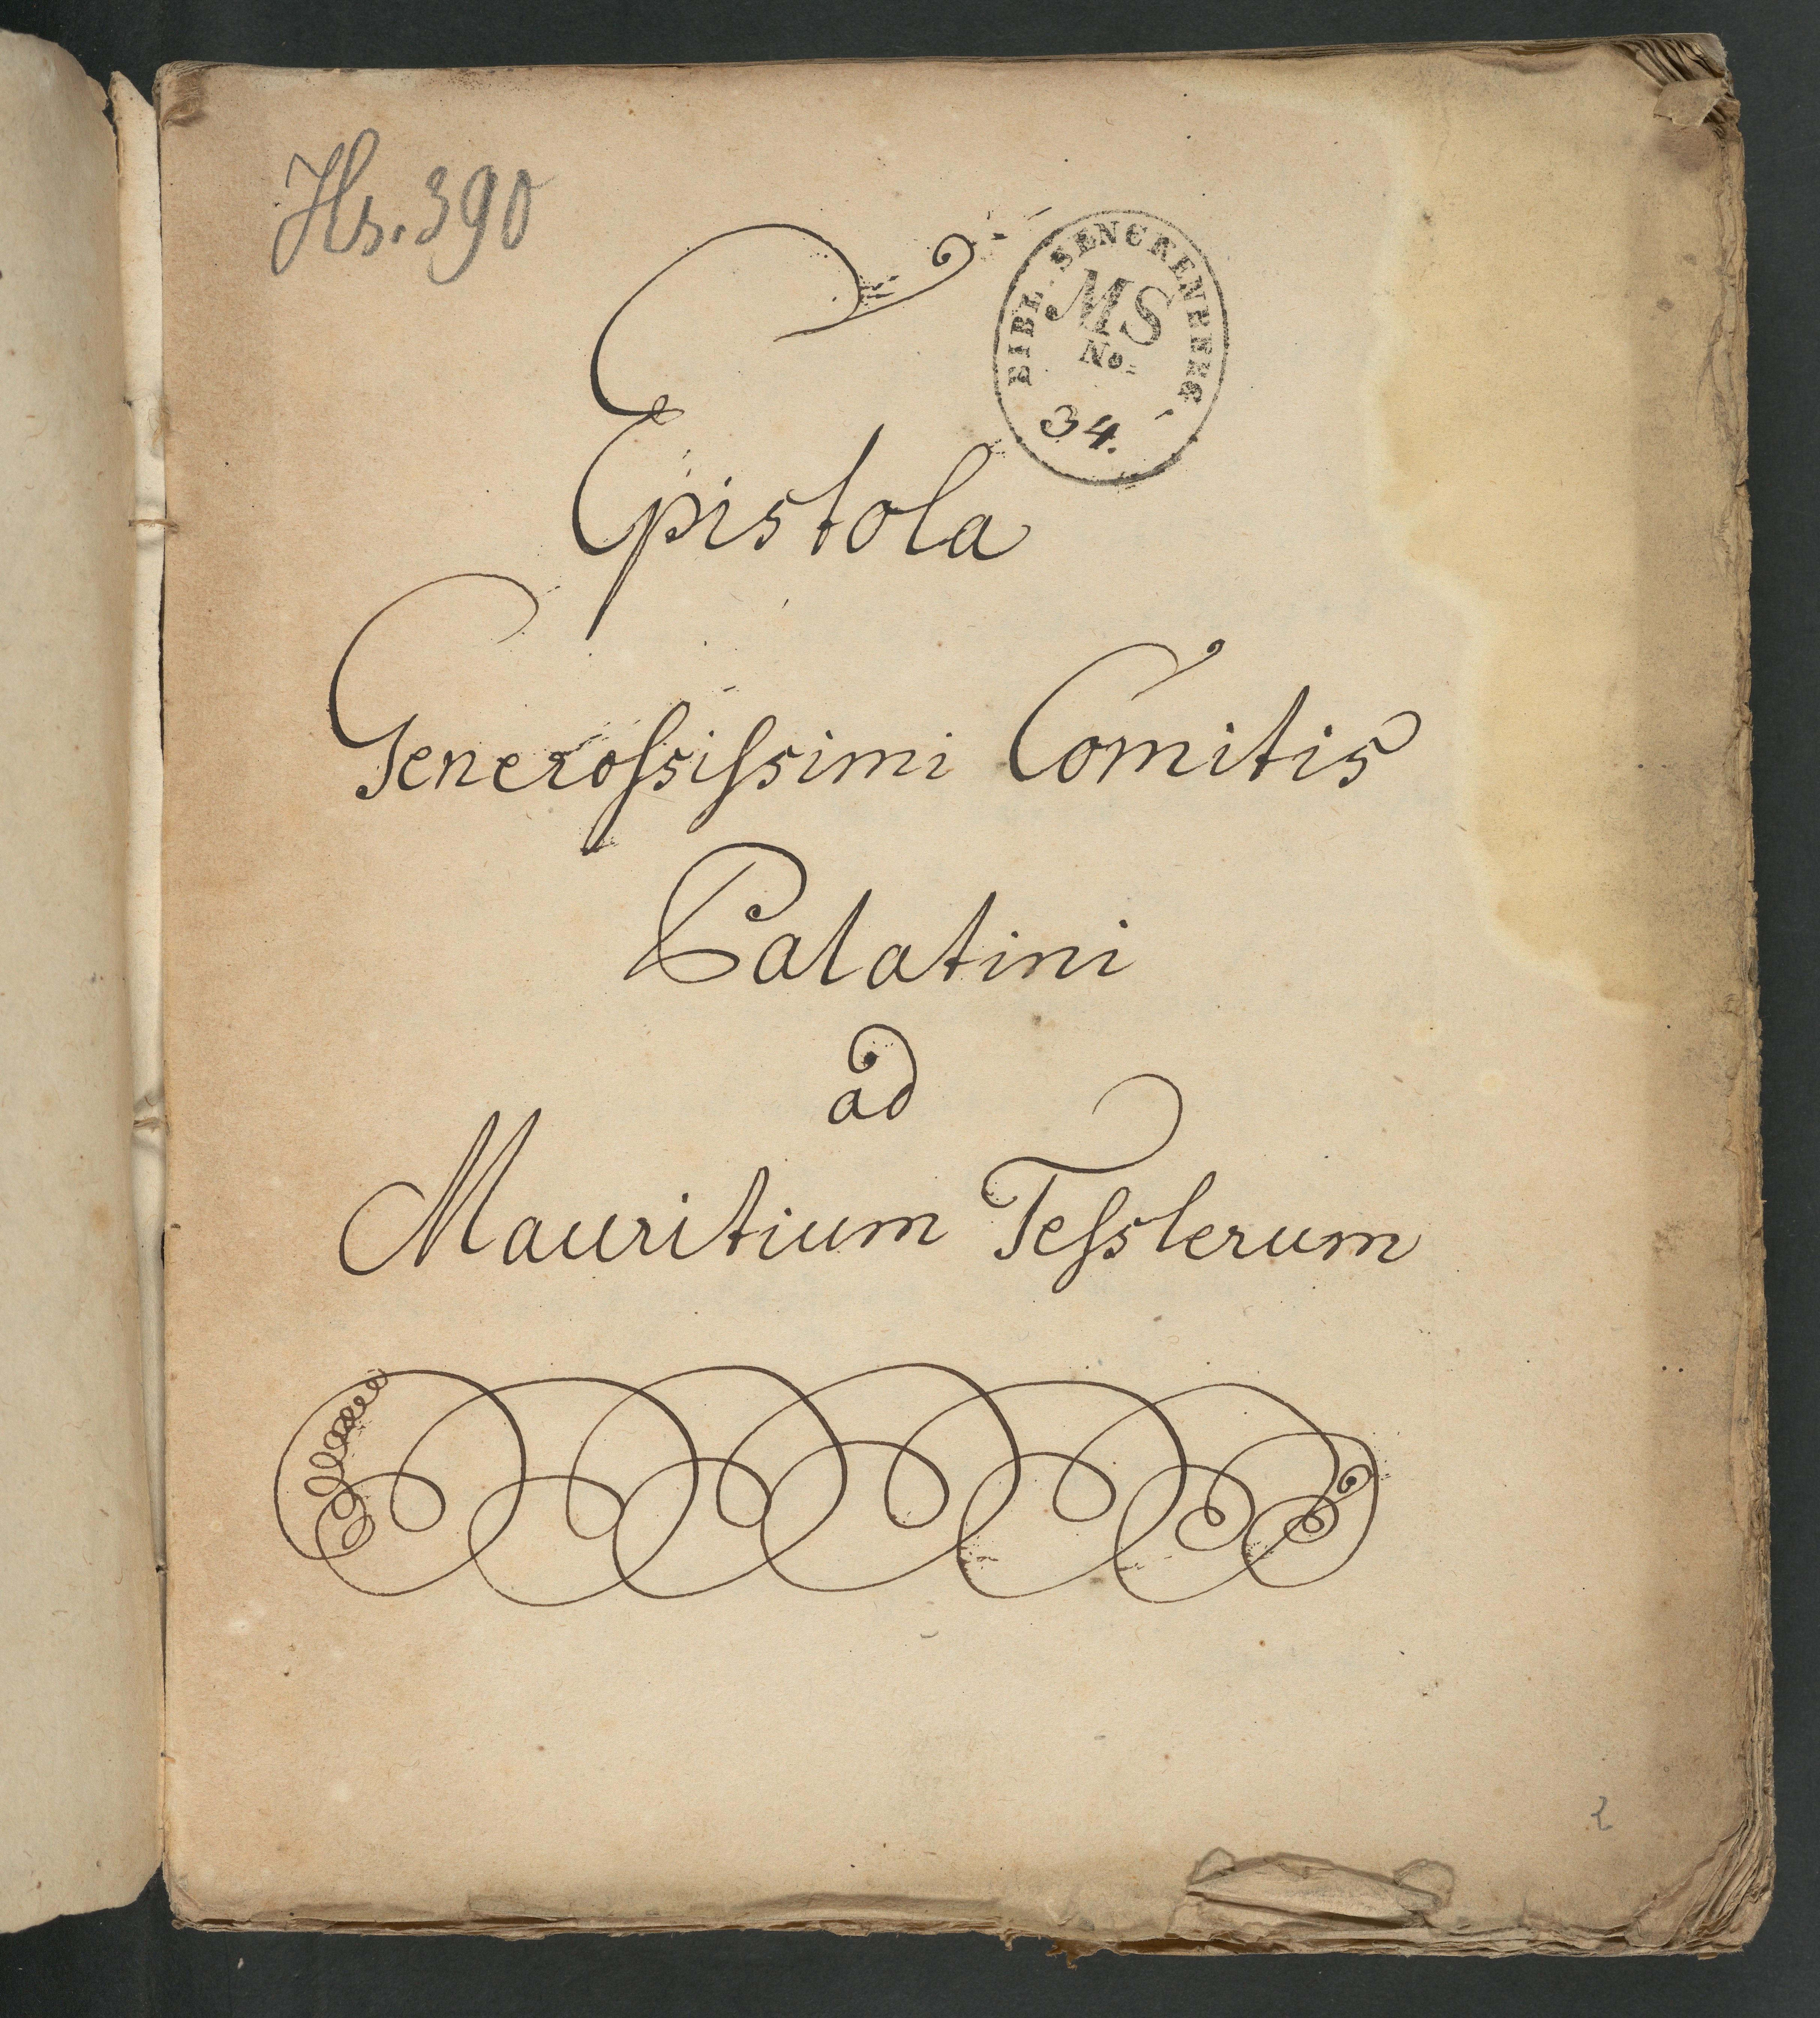 Hs. 390
BIBL. SENCKENBERG
MS
No.
34.
Epistola
Generoſsiſsimi Comitis
Palatini
ad
Mauritium Teſslerum
2